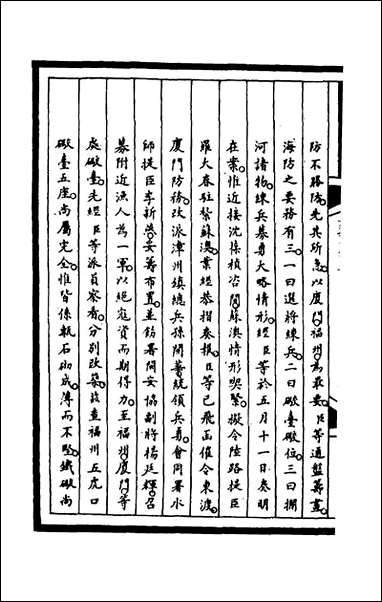 防不勝防先其所急以廈門福州為最要臣等通盤籌畫
海防之要務有三一曰選將練兵二曰礮臺礮位三曰攔
河諸物練兵募勇大略情形經臣等於五月十一日奏明
在案惟近接沈葆楨咨開蘇澳情形喫緊擬令陸路提臣
羅大春駐紥蘇澳業經恭摺奏撥臣等已飛函催令東渡
廈門防務改派漳州鎮總兵孫開華統領兵勇會同署水
師提臣李新燕妥籌布置並飭署閩安協副將楊廷輝召
募附近漁人為一軍以絕寇資而期得力至福州廈門等
處礮臺先經臣等派員察看分別改築茲查福州五虎口
礮臺五座尚屬完全惟皆係亂石砌成薄而不堅鐵礮尚